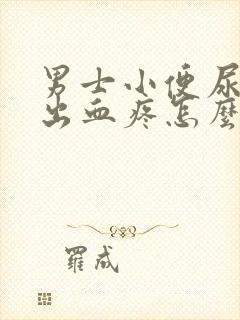 男士小便尿
出血疼怎麼
羅成